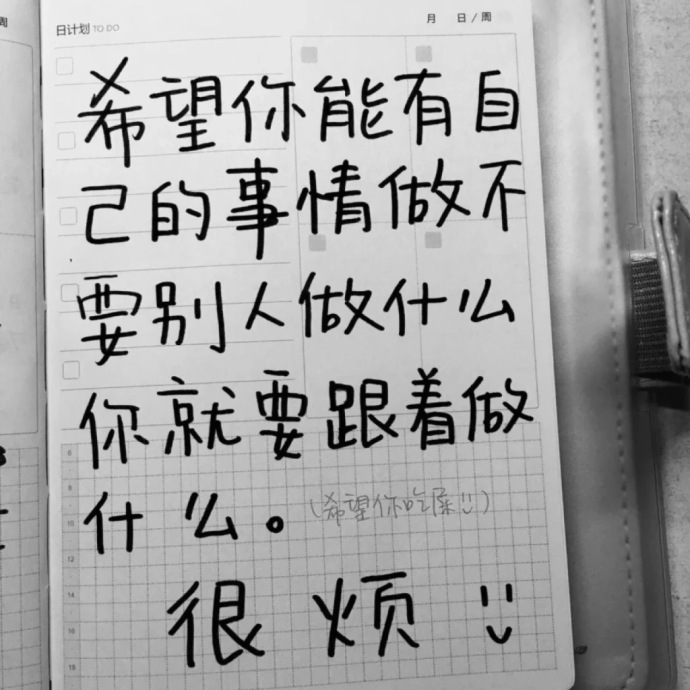 日计划 TO DO
月 日/周
希望你能有自
己的事情做不
要别人做什么
你就要跟着做
什么。(希望你吃屎:))
很烦 :)
6
8
10
12
14
16
18